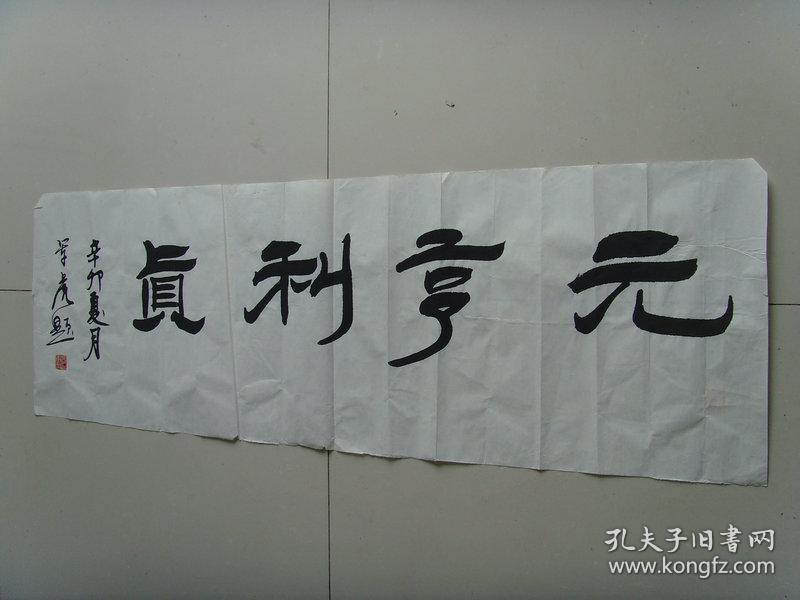 元亨利貞
辛卯夏月
孔夫子旧书网
www.kongfz.com